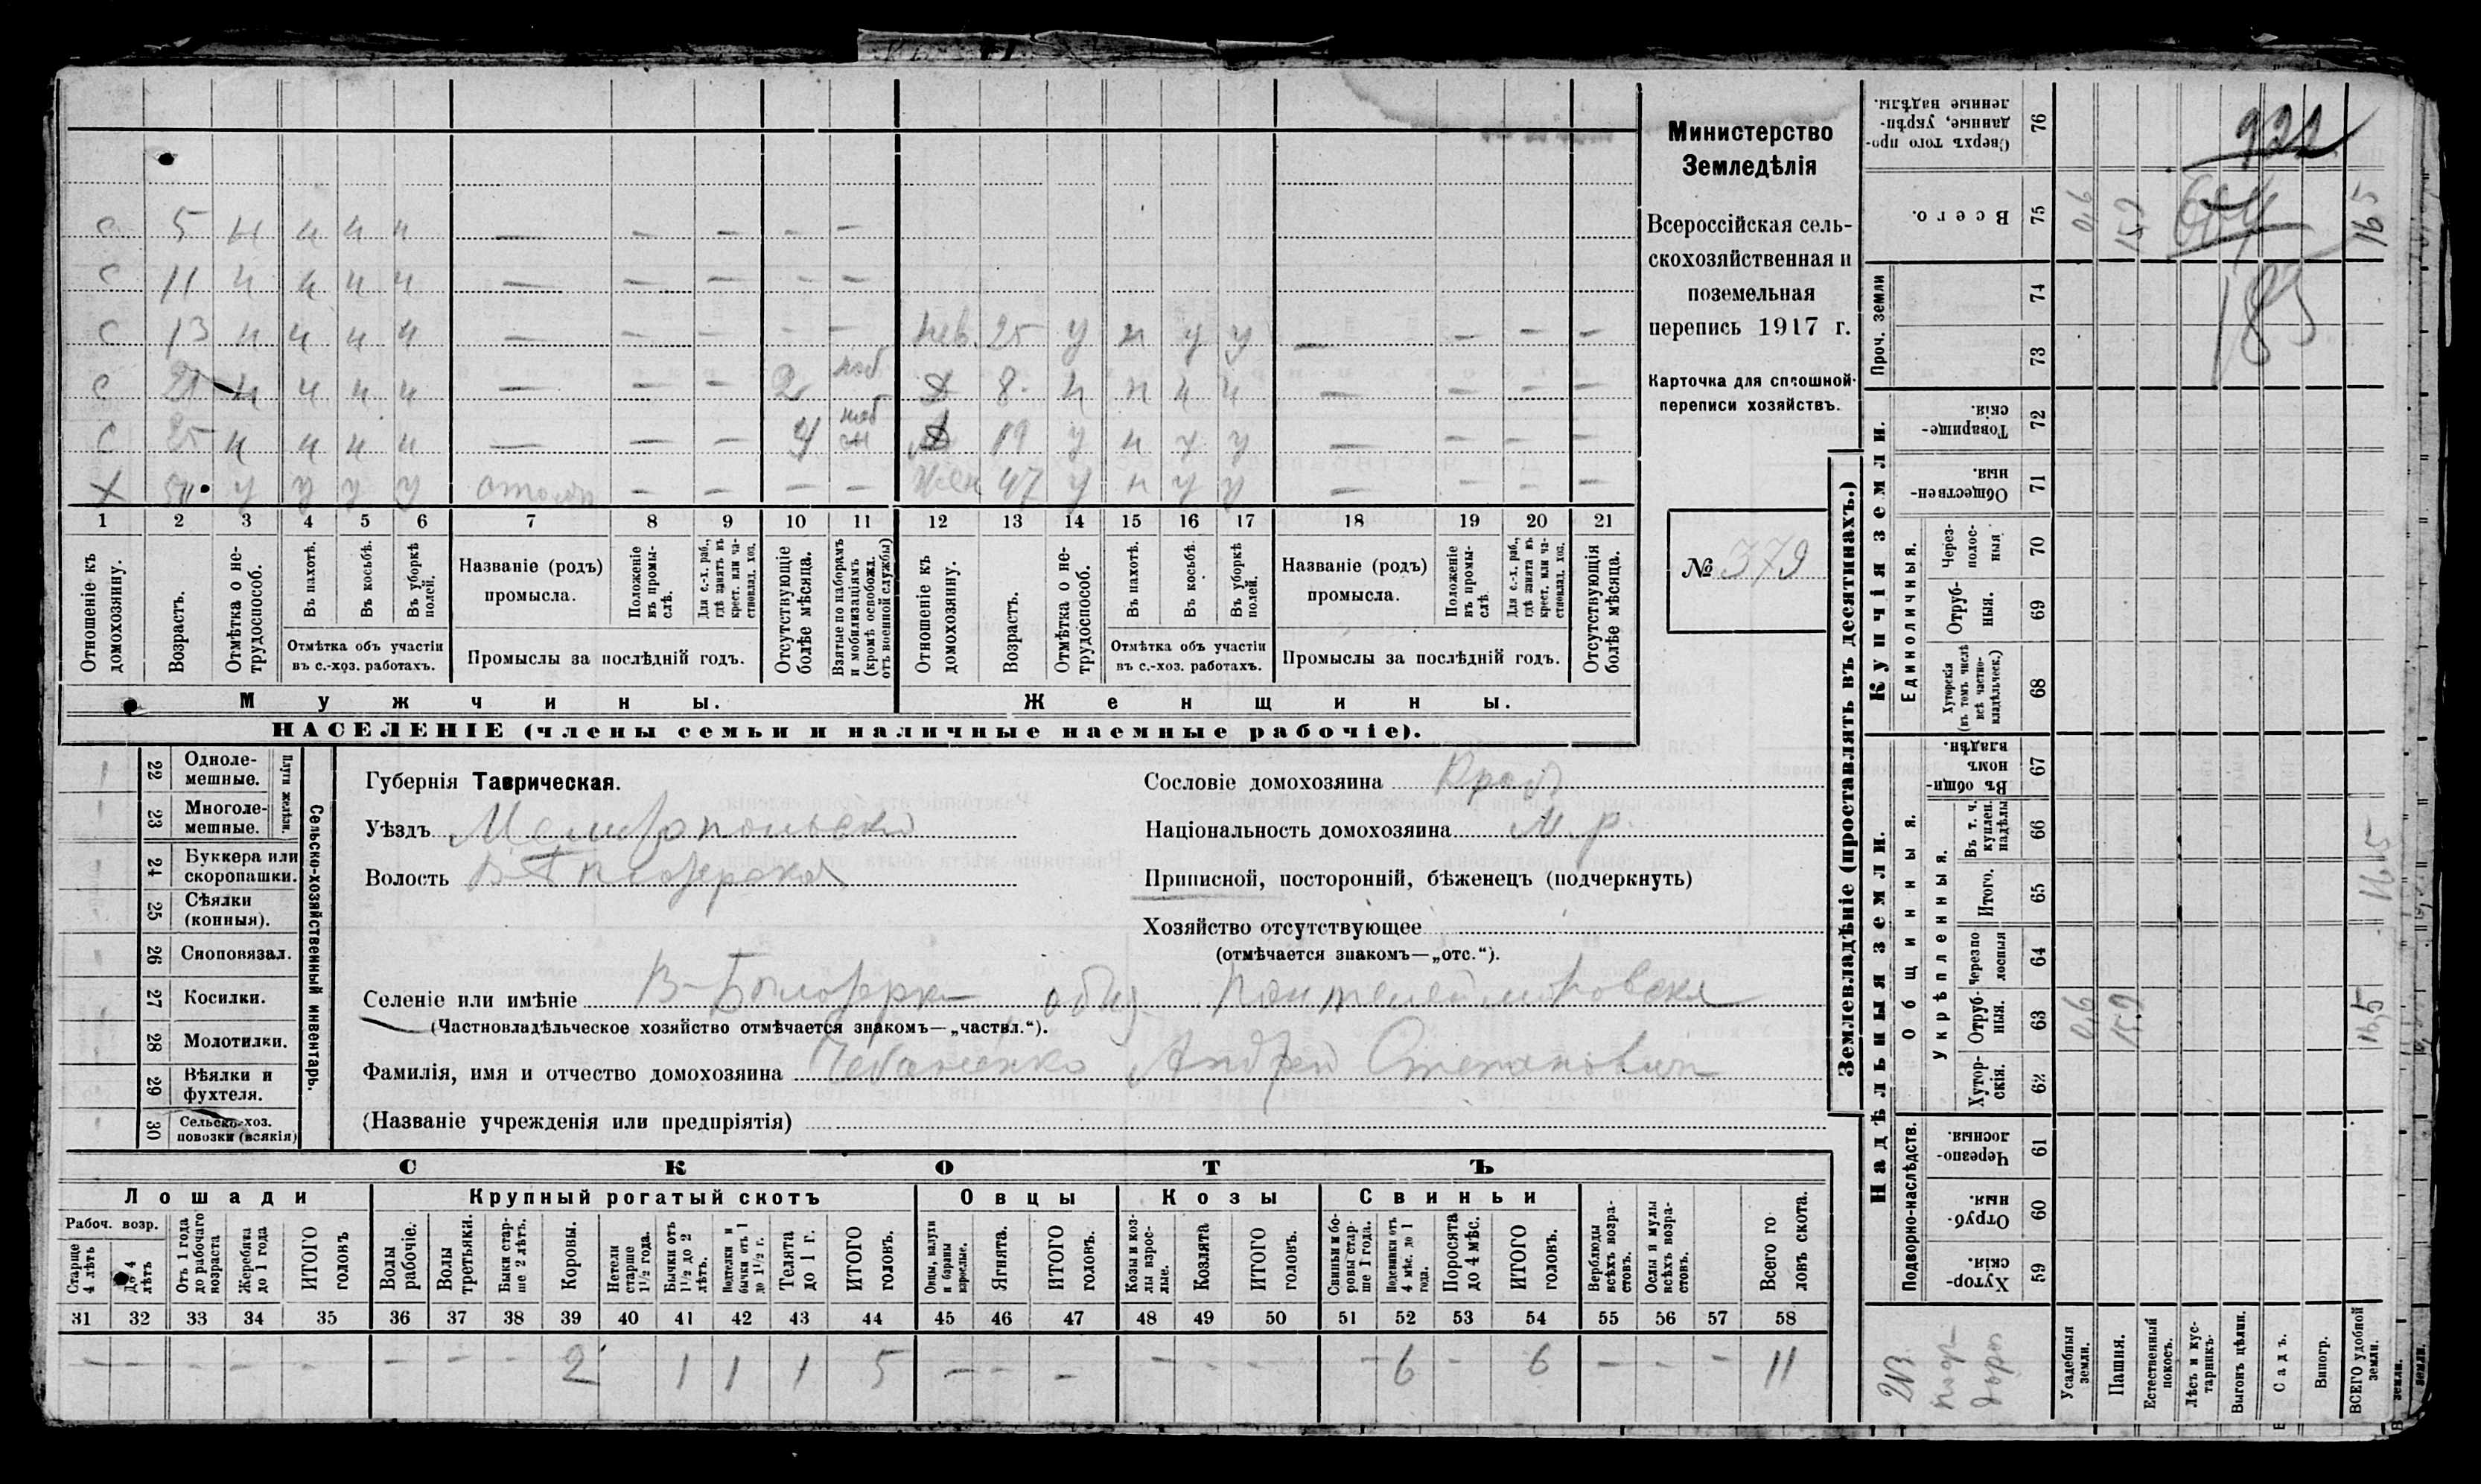 с 5 н н н н — — — — —
с 11 н н н н — — — — —
с 13 н н н н — — — — — нев. 25 у н у у — — — —
с 21 н н н н — — — 2 моб 8 н н н н — — — —
с 25 н н н н — — — 4 моб 19 у н у у — — — —
х у у у у — — — — жен 47 у н у у — — — —
1 2 3 4 5 6 7 8 9 10 11 12 13 14 15 16 17 18 19 20 21
Отношеніе къ домохозяину.
Возрастъ.
Отмѣтка о не-
трудоспособ.
Въ пахотѣ.
Въ косьбѣ.
Въ уборкѣ
полей.
Отмѣтка объ участіи
въ с.-хоз. работахъ.
Названіе (родъ)
промысла.
Положеніе
въ промы-
слѣ.
Для с.-х. раб.,
гдѣ занятъ въ
крест. или ча-
стновлад. хоз.
Промыслы за послѣдній годъ.
Отсутствующіе
болѣе мѣсяца.
Взятые по наборамъ
и мобилизаціямъ
(кромѣ освобожд.
отъ военной службы)
Отношеніе къ
домохозяину.
Возрастъ.
Отмѣтка о не-
трудоспособ.
Въ пахотѣ.
Въ косьбѣ.
Въ уборкѣ
полей.
Отмѣтка объ участіи
въ с.-хоз. работахъ.
Названіе (родъ)
промысла.
Положеніе
въ промы-
слѣ.
Для с.-х. раб.,
гдѣ занята въ
крест. или ча-
стновлад. хоз.
Промыслы за послѣдній годъ.
Отсутствующія
болѣе мѣсяца.
Мужчины.
Женщины.
НАСЕЛЕНІЕ (члены семьи и наличные наемные рабочіе).
Министерство
Земледѣлія
Всероссійская сель-
скохозяйственная и
поземельная
перепись 1917 г.
Карточка для сплошной
переписи хозяйствъ.
№ 379
22 Одноле-
мешные.
23 Многоле-
мешные.
Плуги желѣзн.
24 Буккера или
скоропашки.
25 Сѣялки
(конныя).
26 Сноповязал.
27 Косилки.
28 Молотилки.
29 Вѣялки и
фухтеля.
30 Сельско-хоз.
повозки (всякія)
Сельско-хозяйственный инвентарь.
Губернія Таврическая.
Уѣздъ Мелитопольскій
Волость В Бѣлозерская
Сословіе домохозяина
Національность домохозяина м. р.
Приписной, посторонній, бѣженецъ (подчеркнуть)
Хозяйство отсутствующее
(отмѣчается знакомъ—„отс.“).
Селеніе или имѣніе В-Бѣлозерка общ. Пантелеймоновское
(Частновладѣльческое хозяйство отмѣчается знакомъ—„частвл.“).
Фамилія, имя и отчество домохозяина Чебаненко Андрей Степанович
(Названіе учрежденія или предпріятія)
СКОТЪ
Лошади Крупный рогатый скотъ Овцы Козы Свиньи
Рабоч. возр.
Старше
4 лѣтъ
До 4
лѣтъ
Отъ 1 года
до рабочаго
возраста
Жеребята
до 1 года
ИТОГО
головъ
Волы
рабочіе.
Волы
третьяки.
Быки стар-
ше 2 лѣтъ.
Коровы.
Нетели
старше
1½ года.
Бычки отъ
1½ до 2
лѣтъ.
Подтелки и
бычки отъ 1
до 1½ г.
Телята
до 1 г.
ИТОГО
головъ.
Овцы, валухи
и бараны
взрослые.
Ягнята.
ИТОГО
головъ.
Козы и коз-
лы взрос-
лые.
Козлята
ИТОГО
головъ.
Свиньи и бо-
ровы стар-
ше 1 года.
Подсвинки отъ
4 мѣс. до 1
года.
Поросята
до 4 мѣс.
ИТОГО
головъ.
Верблюды
всѣхъ возра-
стовъ.
Ослы и мулы
всѣхъ возра-
стовъ.
Всего го
ловъ скота.
31 32 33 34 35 36 37 38 39 40 41 42 43 44 45 46 47 48 49 50 51 52 53 54 55 56 57 58
— — — — — — — — 2 1 1 1 5 — — — — - - - 6 - 6 — — — 11
Землевладѣніе (проставлять въ десятинахъ.)
Надѣльныя земли.
Купчія земли.
Проч. земли
Подворно-наслѣдств.
Общинныя.
Укрѣпленныя.
Единоличныя.
Хутор-
скія.
59
Отруб-
ныя.
60
Черезпо-
лосныя.
61
Хутор-
скія.
62
Отруб-
ныя.
63
Черезпо
лосныя
64
Итого.
65
Въ т. ч.
куплен.
надѣлы
66
Въ общи-
номъ
владѣн.
67
Хуторскія
(въ томъ числѣ
всѣ частно-
владѣльческ.)
68
Отруб-
ныя.
69
Через-
полос-
ныя
70
Обществен-
ныя.
71
Товарище-
скія.
72
73
74
Всего.
75
Сверхъ того про-
данные, укрѣп-
ленные надѣлы.
76
Усадебныя
земли.
Пашня.
Естественный
покосъ.
Лѣсъ и кус-
тарникъ.
Выгонъ цѣлин.
Садъ.
Виногр.
ВСЕГО удобной
земли.
0,6 15.9 16,5
16,5
0,6 15,9 16 5
922
183